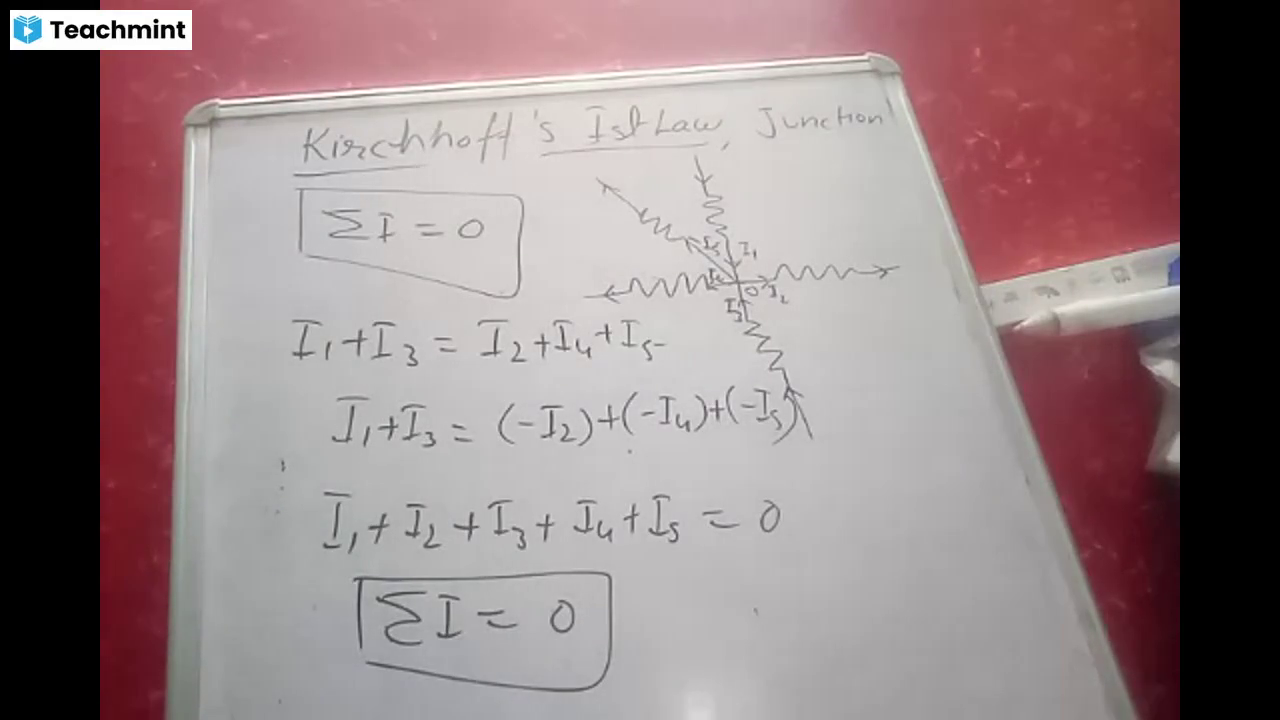 Teachmint
Kirchhoff's Ist Law, Junction
ΣI = 0
I₁
I₅
I₄
O
I₂
I₃
I₁+I₃ = I₂+I₄+I₅
I₁+I₃ = (-I₂)+(-I₄)+(-I₅)
I₁+I₂+I₃+I₄+I₅ = 0
ΣI = 0